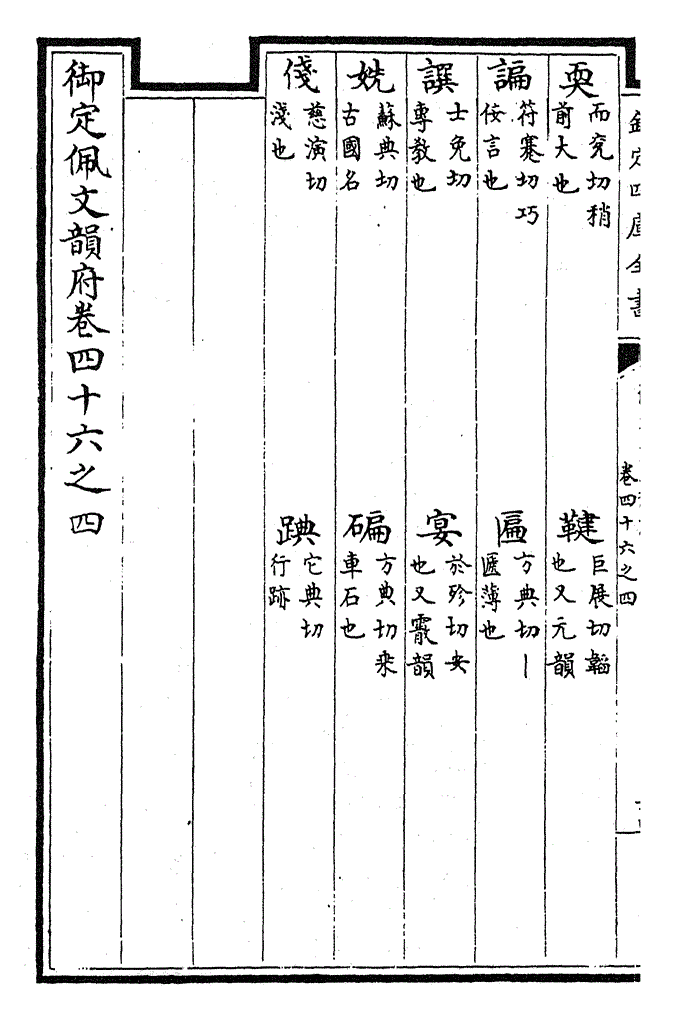 欽定四庫全書 卷四十六之四
耎 而兖切稍前大也 鞬 巨展切韜也又元韻
諞 符蹇切巧佞言也 匾 方典切丨㔸薄也
譔 士免切專教也 宴 於殄切安也又霰韻
姺 蘇典切古國名 碥 方典切乘車石也
俴 慈演切淺也 它典切行跡
御定佩文韻府卷四十六之四